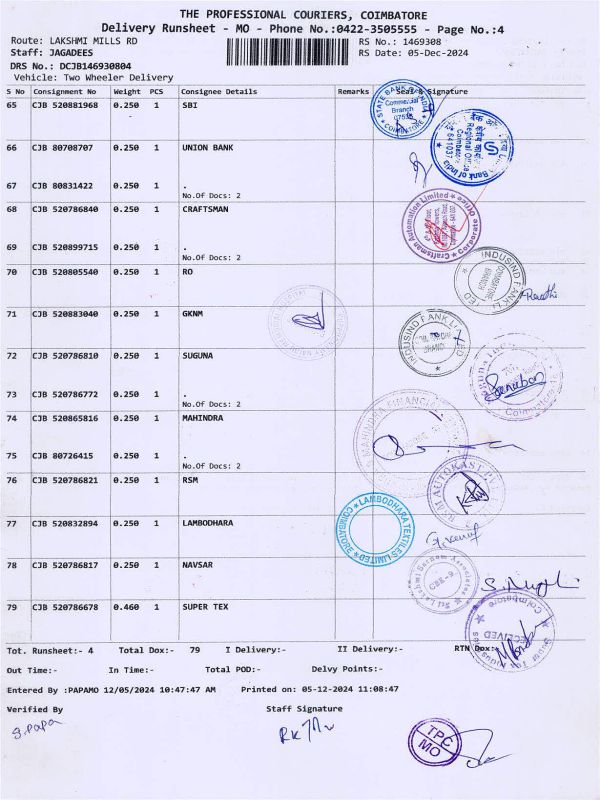 THE PROFESSIONAL COURIERS, COIMBATORE
Delivery Runsheet - MO - Phone No.:0422-3505555 - Page No.:4
Route: LAKSHMI MILLS RD
RS No.: 1469308
Staff: JAGADEES
RS Date: 05-Dec-2024
DRS No.: DCJB146930804
Vehicle: Two Wheeler Delivery
S No Consignment No Weight PCS Consignee Details Remarks Seal & Signature
65 CJB 520881968 0.250 1 SBI
STATE BANK
Commercial
Branch
COIMBATORE
66 CJB 80708707 0.250 1 UNION BANK
Regional Office
Coimbatore
641037
Bank of India
67 CJB 80831422 0.250 1 .
No.Of Docs: 2
68 CJB 520786840 0.250 1 CRAFTSMAN
Craftsman Automation Limited
Corporate Office
69 CJB 520899715 0.250 1 .
No.Of Docs: 2
70 CJB 520805540 0.250 1 RO
INDUSIND BANK LTD
COIMBATORE
BRANCH
71 CJB 520883040 0.250 1 GKNM
INDUSIND BANK LIMITED
72 CJB 520786810 0.250 1 SUGUNA
Coimbatore
73 CJB 520786772 0.250 1 .
No.Of Docs: 2
74 CJB 520865816 0.250 1 MAHINDRA
MAHINDRA FINANCIAL
75 CJB 80726415 0.250 1 .
No.Of Docs: 2
76 CJB 520786821 0.250 1 RSM
RSM AUTOKAST
77 CJB 520832894 0.250 1 LAMBODHARA
LAMBODHARA TEXTILES LIMITED
COIMBATORE
78 CJB 520786817 0.250 1 NAVSAR
CBE-9
79 CJB 520786678 0.460 1 SUPER TEX
Coimbatore
RECEIVED
Tot. Runsheet:- 4 Total Dox:- 79 I Delivery:- II Delivery:- RTN Dox:-
Out Time:- In Time:- Total POD:- Delvy Points:-
Entered By :PAPAMO 12/05/2024 10:47:47 AM Printed on: 05-12-2024 11:08:47
Verified By Staff Signature
S.PAPA
TPC
MO